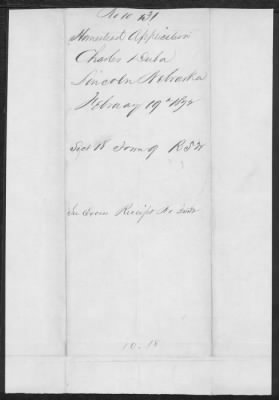 No 10 131
Homestead Application
Charles
Lincoln Nebraska
February 19th 1872
Sect 18 Town 9 R 5 W
Receipt No
10-18